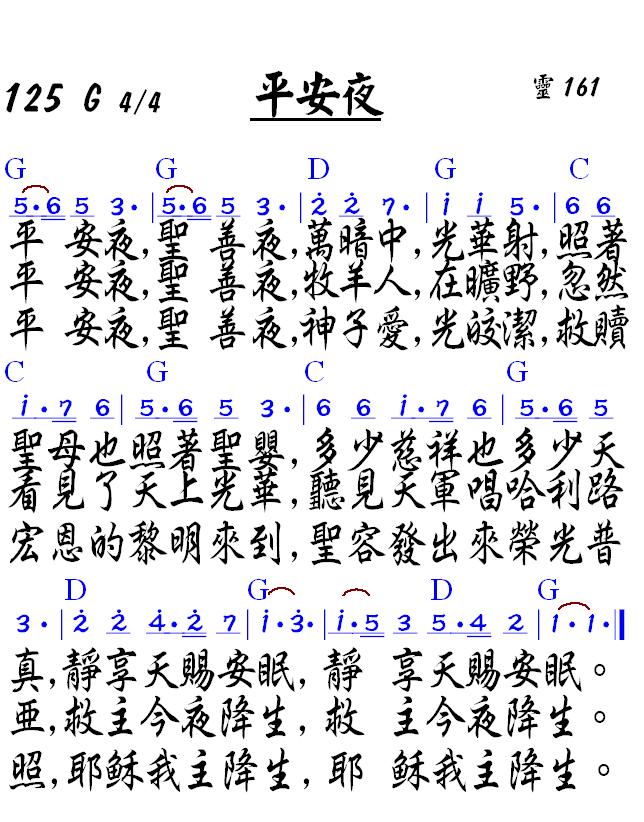 125 G 4/4 平安夜 靈 161
G G D G C
5·6 5 3·|5·6 5 3·|2̇ 2̇ 7·|1̇ 1̇ 5·|6 6
平 安夜,聖 善夜,萬暗中,光華射,照著
平 安夜,聖 善夜,牧羊人,在曠野,忽然
平 安夜,聖 善夜,神子愛,光皎潔,救贖
C G C G
1̇·7 6|5·6 5 3·|6 6 1̇·7 6|5·6 5
聖母也照著聖嬰,多少慈祥也多少天
看見了天上光華,聽見天軍唱哈利路
宏恩的黎明來到,聖容發出來榮光普
D G D G
3·|2̇ 2̇ 4̇·2̇ 7|1̇·3̇·|1̇·5 3 5·4 2|1·1·||
真,靜享天賜安眠,靜 享天賜安眠。
亜,救主今夜降生,救 主今夜降生。
照,耶穌我主降生,耶 穌我主降生。